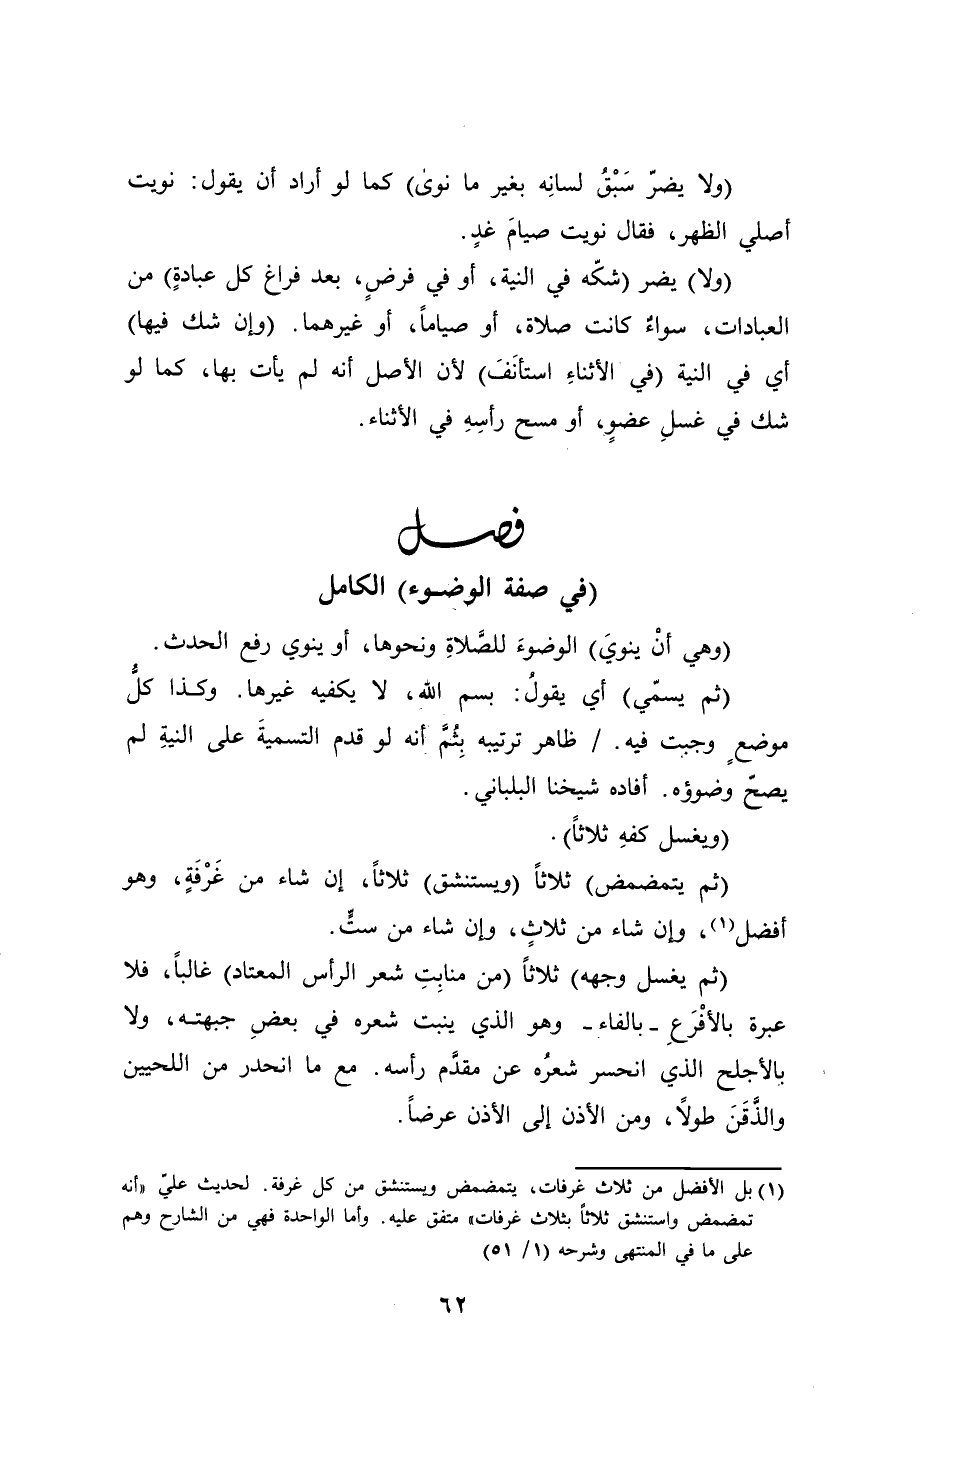 (ولا يضرّ سَبْقُ لسانِه بغير ما نوىٰ) كما لو أراد أن يقول: نويت
أصلي الظهر، فقال نويت صيامَ غدٍ.
(ولا) يضر (شكّه في النية، أو في فرضٍ، بعد فراغ كل عبادةٍ) من
العبادات، سواءٌ كانت صلاة، أو صياماً، أو غيرهما. (وإن شك فيها)
أي في النية (في الأثناءِ استأنَفَ) لأن الأصل أنه لم يأت بها، كما لو
شك في غسلِ عضوٍ، أو مسح رأسِهِ في الأثناء.
فصل
(في صفة الوضوء) الكامل
(وهي أنْ ينويَ) الوضوءَ للصَّلاةِ ونحوها، أو ينوي رفع الحدث.
(ثم يسمّي) أي يقولُ: بسم الله، لا يكفيه غيرها. وكذا كلُّ
موضعٍ وجبت فيه. / ظاهر ترتيبه بِثُمَّ أنه لو قدم التسميةَ على النيةِ لم
يصحّ وضوؤه. أفاده شيخنا البلباني.
(ويغسل كفهِ ثلاثاً).
(ثم يتمضمض) ثلاثاً (ويستنشق) ثلاثاً، إن شاء من غَرْفَةٍ، وهو
أفضل(١)، وإن شاء من ثلاثٍ، وإن شاء من ستٍّ.
(ثم يغسل وجهه) ثلاثاً (من منابِتِ شعر الرأس المعتاد) غالباً، فلا
عبرة بالأفْرَعِ ـ بالفاء ـ وهو الذي ينبت شعره في بعضِ جبهتـه، ولا
بالأجلح الذي انحسر شعرُه عن مقدَّم رأسه. مع ما انحدر من اللحيين
والذَّقَنَ طولًا، ومن الأذن إلى الأذن عرضاً.
(١) بل الأفضل من ثلاث غرفات، يتمضمض ويستنشق من كل غرفة. لحديث عليّ «أنه
تمضمض واستنشق ثلاثاً بثلاث غرفات» متفق عليه. وأما الواحدة فهي من الشارح وهم
على ما في المنتهى وشرحه (١/ ٥١)
٦٢